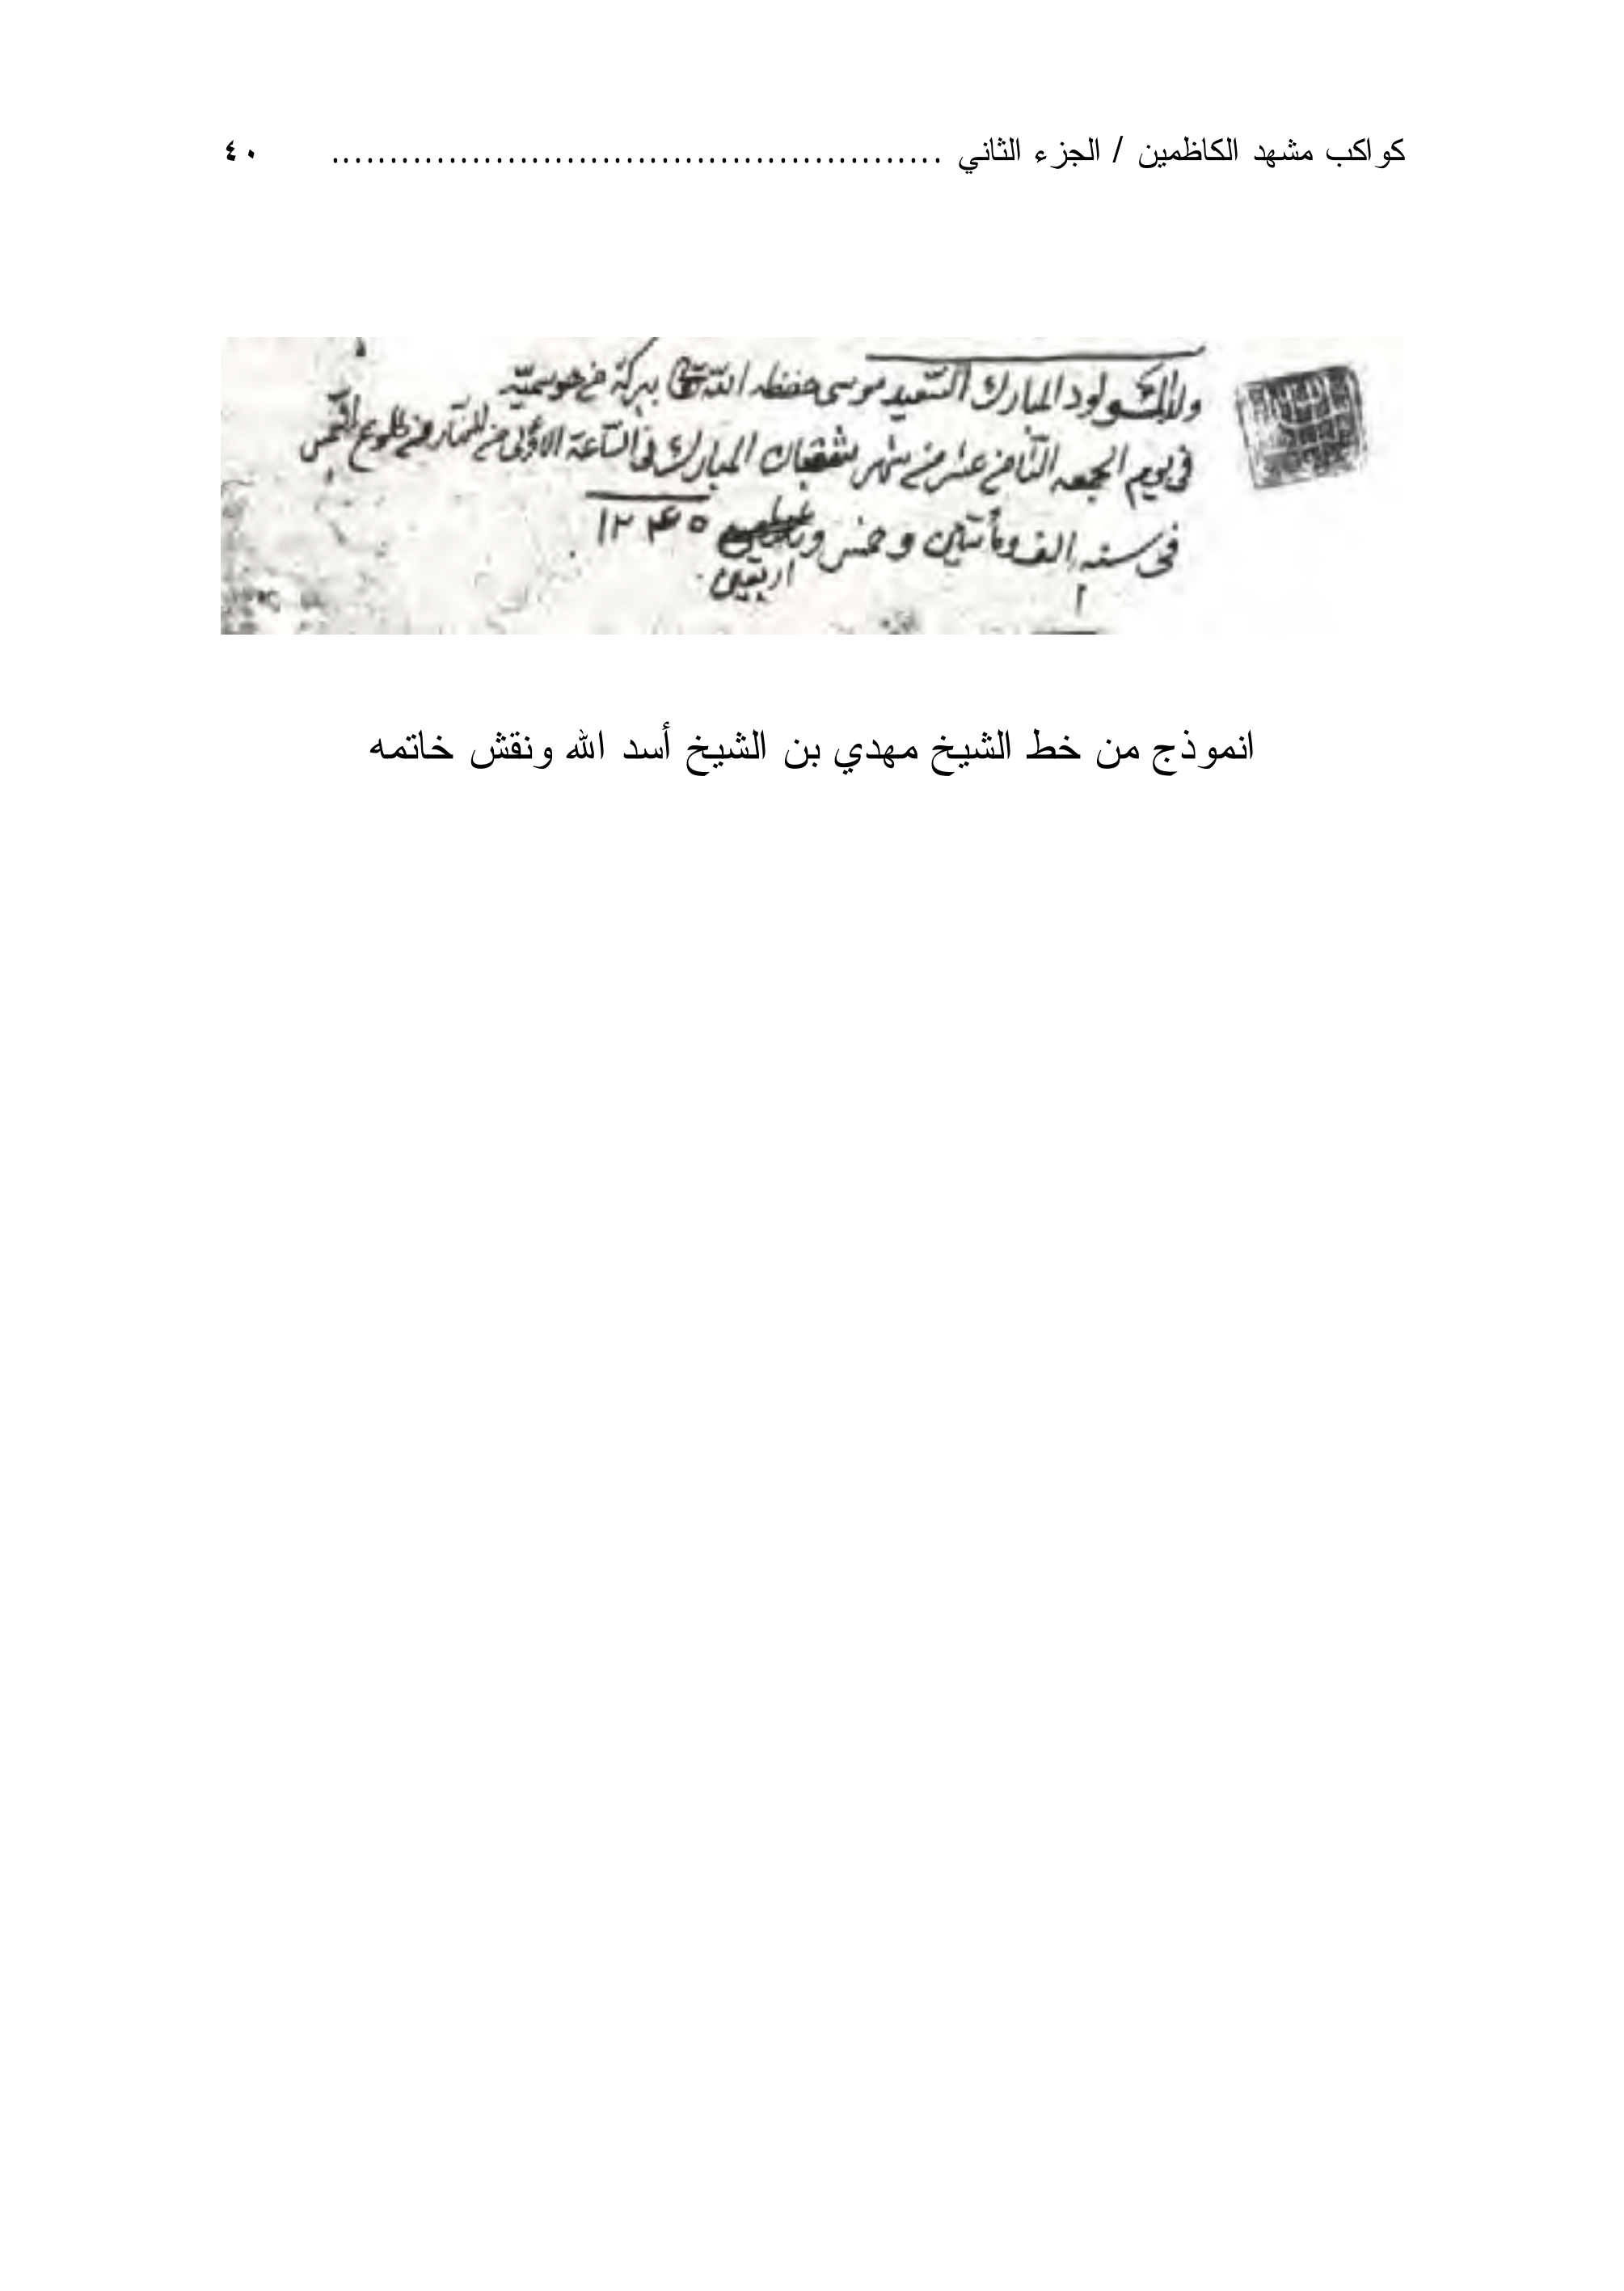 كواكب مشهد الكاظمين / الجزء الثاني .................................................... ٤٠
ولد المولود المبارك السعيد موسى حفظه الله ببركة من هو سميّه
في يوم الجمعه الثامن عشر من شهر شعبان المبارك في الساعة الاولى من النهار من طلوع الشمس
في سنه الف ومأتين وخمس و ١٢٤٥
اربعين
انموذج من خط الشيخ مهدي بن الشيخ أسد الله ونقش خاتمه